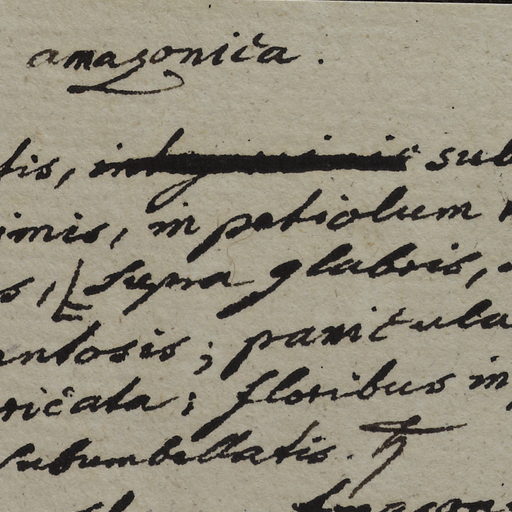 amazonica.
tis, integerrimis sub
imis, in petiolum
s, supra glabris,
entosis; panicula
ricata; floribus in
subumbellatis. ♄